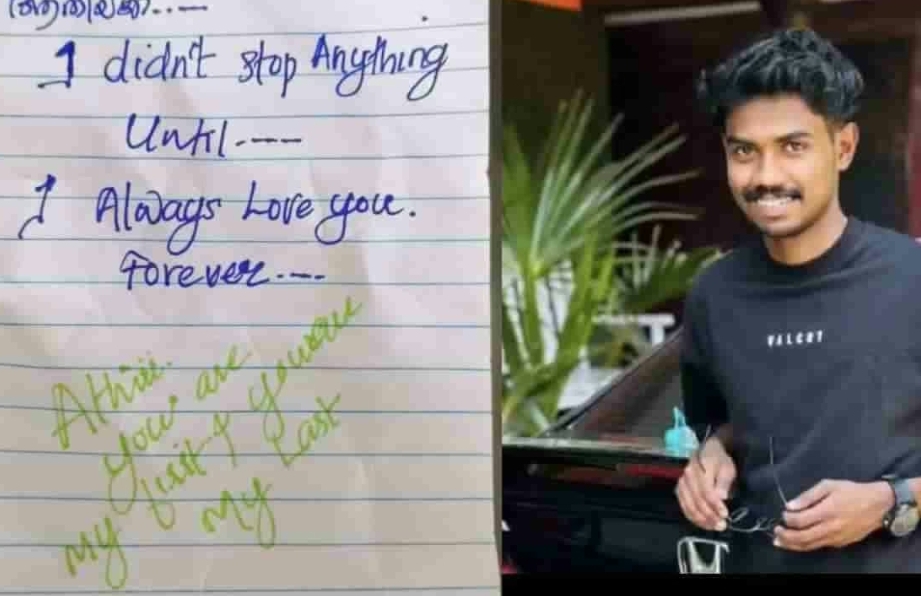 I didn't stop Anything
Until ----
I Always Love you.
Forever ----
Athiii.
You are
my first & You are
my Last
VALCOT